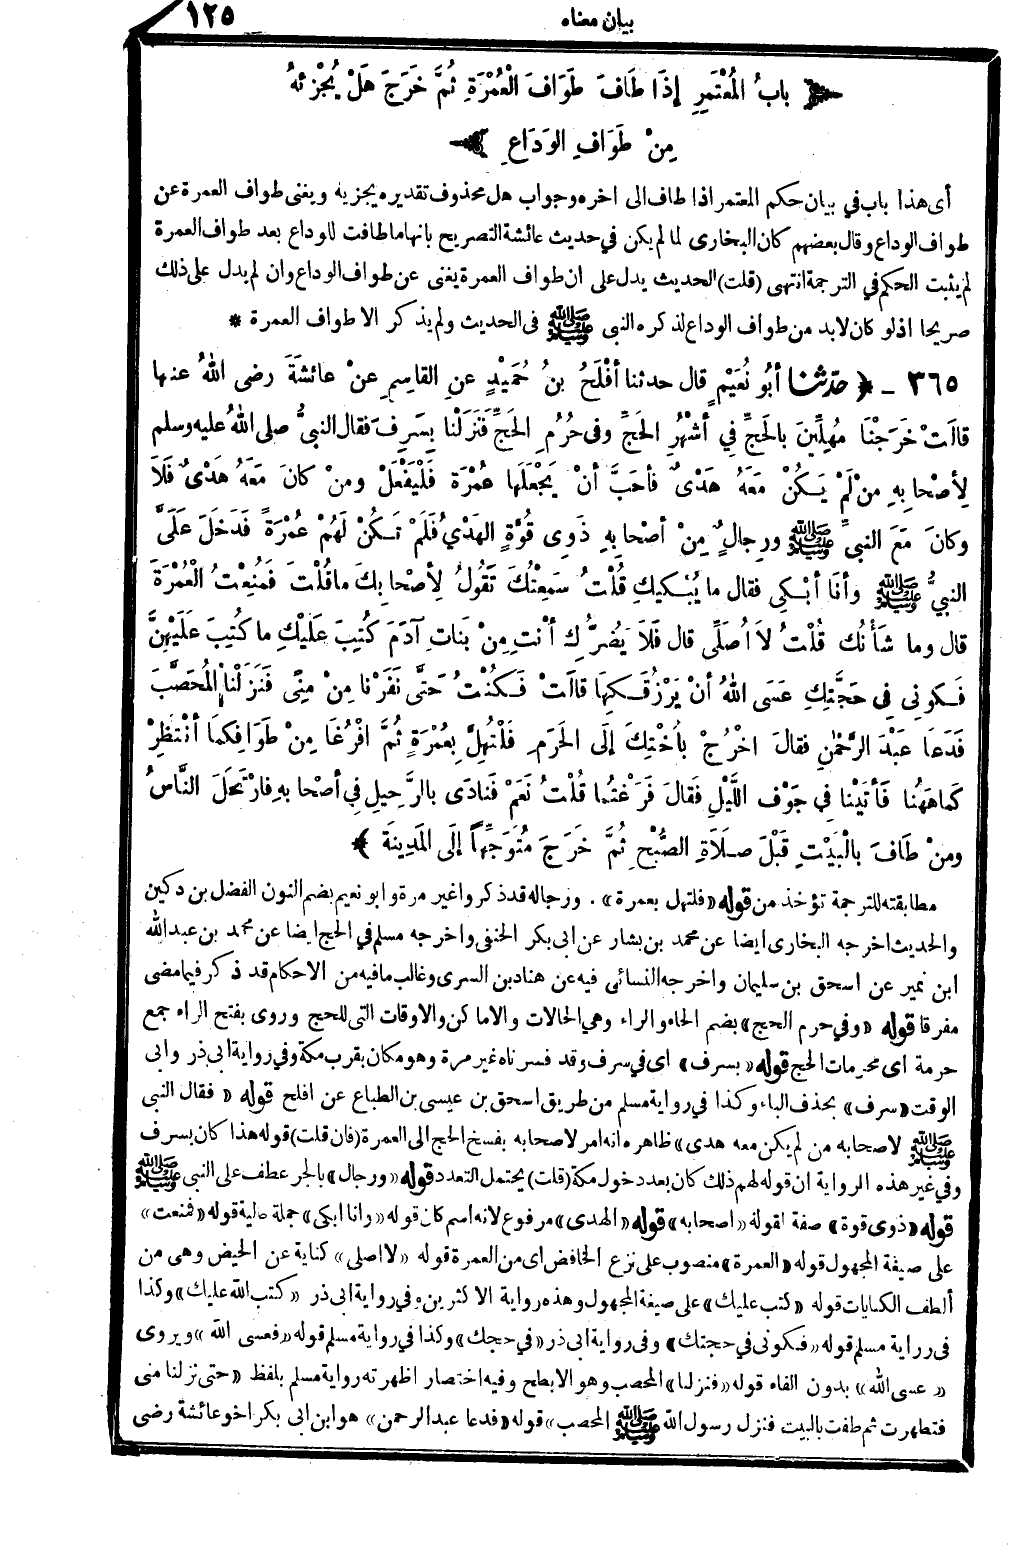 بيان معناه ١٢٥
﴿ بابُ المُعْتَمِرِ إِذَا طَافَ طَوَافَ الْعُمْرَةِ ثُمَّ خَرَجَ هَلْ يُجْزِئهُ
مِنْ طَوَافِ الوَدَاعِ ﴾
أى هذا باب في بيان حكم المعتمر اذا طاف الى اخره وجواب هل محذوف تقديره يجزيه ويغنى طواف العمرة عن
طواف الوداع وقال بعضهم كان البخارى لما لم يكن في حديث عائشة التصريح بانها ما طافت للوداع بعد طواف العمرة
لم يثبت الحكم في الترجمة انتهى (قلت) الحديث يدل على ان طواف العمرة يغنى عن طواف الوداع وان لم يدل على ذلك
صريحا اذ لو كان لابد من طواف الوداع لذكره النبى ﷺ فى الحديث ولم يذكر الا طواف العمرة *
٣٦٥ - ﴿ حدّثنا أبُو نُعَيْمٍ قال حدثنا أفْلَحُ بنُ حُمَيْدٍ عنِ القاسِمِ عنْ عائشَةَ رضى اللهُ عنها
قالَتْ خَرَجْنَا مُهِلِّينَ بالحَجِّ فِي أشْهُرِ الحَجِّ وفى حُرُمِ الحَجِّ فَنَزَلْنا بِسَرِفَ فقال النبىُّ صلى اللهُ عليه وسلم
لِأصْحابِهِ مَنْ لَمْ يَكُنْ مَعَهُ هَدْىٌ فأحَبَّ أنْ يَجْعَلَها عُمْرَةً فَلْيَفْعَلْ ومنْ كانَ مَعَهُ هَدْىٌ فَلاَ
وكانَ مَعَ النبىِّ ﷺ ورِجالٍ مِنْ أصْحابِهِ ذَوِى قُوَّةٍ الهَدْىُ فَلَمْ تَكُنْ لَهُمْ عُمْرَةً فَدَخَلَ عَلَىَّ
النبىُّ ﷺ وأنَا أبْكِى فقال ما يُبْكيكِ قُلْتُ سَمِعْتُكَ تَقُولُ لِأصْحابِكَ ما قُلْتَ فَمُنِعْتُ الْعُمْرَةَ
قال وما شَأْنُكِ قُلْتُ لاَ أُصَلِّى قال فَلاَ يَضُرُّكِ أنْتِ مِنْ بَناتِ آدَمَ كُتِبَ عَلَيْكِ ما كُتِبَ عَلَيْهِنَّ
فَكونِى فِى حَجَّتِكِ عَسَى اللهُ أنْ يَرْزُقَكِها قالَتْ فَكُنْتُ حَتَّى نَفَرْنا مِنْ مِنًى فَنَزَلْنا الْمُحَصَّبَ
فَدَعا عَبْدَ الرَّحْمٰنِ فقالَ اخْرُجْ بأُخْتِكَ إلَى الحَرَمِ فَلْتُهِلَّ بِعُمْرَةٍ ثُمَّ افْرُغَا مِنْ طَوَافِكما أنْتَظِرْ
كَماهَهُنا فَأتَيْنا فِى جَوْفِ اللَّيْلِ فَقالَ فَرَغْتُما قُلْتُ نَعَمْ فَنادَى بالرَّحِيلِ فِى أصْحابِهِ فارْتَحَلَ النَّاسُ
ومنْ طَافَ بالْبَيْتِ قَبْلَ صلاَةِ الصُّبْحِ ثُمَّ خَرَجَ مُتَوَجِّهاً إلَى المَدِينَةِ ﴾
مطابقته للترجمة تؤخذ من قوله «فلتهل بعمرة» . ورجاله قد ذكروا غير مرة وابو نعيم بضم النون الفضل بن دكين
والحديث اخرجه البخارى ايضا عن محمد بن بشار عن ابى بكر الحنفى واخرجه مسلم في الحج ايضا عن محمد بن عبدالله
ابن نمير عن اسحق بن سليمان واخرجه النسائى فيه عن هناد بن السرى وغالب ما فيه من الاحكام قد ذكر فيما مضى
مفرقا قوله «وفي حرم الحج» بضم الحاء والراء وهي الحالات والاماكن والاوقات التى للحج وروى بفتح الراء جمع
حرمة اى محرمات الحج قوله «بسرف» اى في سرف وقد فسرناه غير مرة وهو مكان بقرب مكة وفي رواية ابى ذر وابى
الوقت «سرف» بحذف الباء وكذا في رواية مسلم من طريق اسحق بن عيسى بن الطباع عن افلح قوله «فقال النبى
ﷺ لاصحابه من لم يكن معه هدى» ظاهره انه امر لاصحابه بفسخ الحج الى العمرة (فان قلت) قوله هذا كان بسرف
وفي غير هذه الرواية ان قوله لهم ذلك كان بعد دخول مكة (قلت) يحتمل التعدد قوله «ورجال» بالجر عطف على النبى ﷺ
قوله «ذوى قوة» صفة لقوله «اصحابه» قوله «الهدى» مرفوع لانه اسم كان قوله «وانا ابكى» جملة حالية قوله «فمنعت»
على صيغة المجهول قوله «العمرة» منصوب على نزع الخافض اى من العمرة قوله «لا اصلى» كناية عن الحيض وهى من
ألطف الكنايات قوله «كتب عليك» على صيغة المجهول وهذه رواية الاكثرين وفي رواية ابى ذر «كتب الله عليك» وكذا
فى رواية مسلم قوله «فكونى في حجتك» وفى رواية ابى ذر «في حجك» وكذا في رواية مسلم قوله «فعسى الله» ويروى
«عسى الله» بدون الفاء قوله «فنزلنا» المحصب وهو الابطح وفيه اختصار اظهرته رواية مسلم بلفظ «حتى نزلنا منى
فتطهرت ثم طفت بالبيت فنزل رسول الله ﷺ المحصب» قوله «فدعا عبدالرحمن» هو ابن ابى بكر اخو عائشة رضى